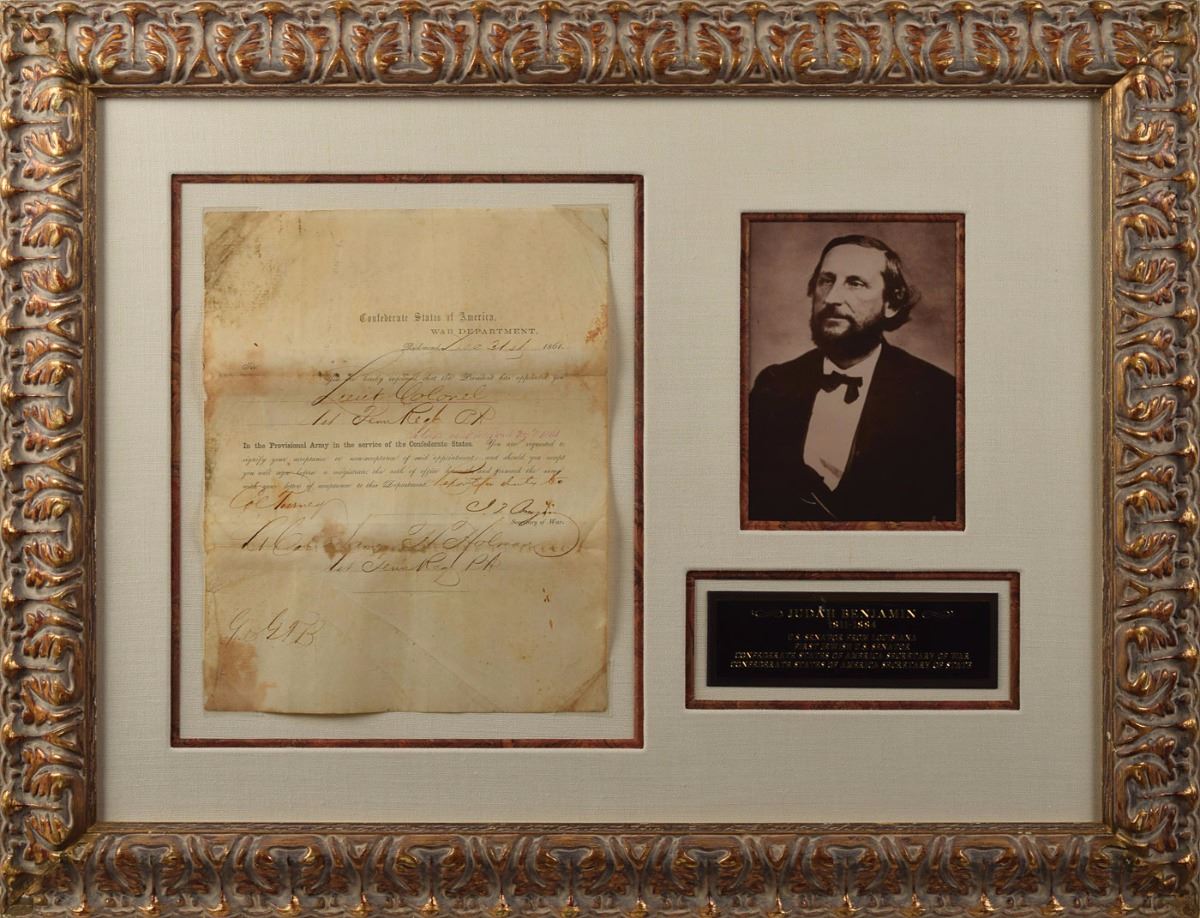 Confederate States of America,
WAR DEPARTMENT,
Richmond, Dec 31st 1861.
Sir:
You are hereby informed that the President has appointed you
Lieut Colonel
1st Tenn Regt PA
In the Provisional Army in the service of the Confederate States. You are requested to
signify your acceptance or non-acceptance of said appointment; and should you accept
you will sign before a magistrate the oath of office herewith and forward the same
with your letter of acceptance to this Department. Report for duty to
Col Turney
Secretary of War.
Lt Col James H Holman
1st Tenn Reg PA
JUDAH BENJAMIN
1811-1884
U.S. SENATOR FROM LOUISIANA
FIRST JEWISH U.S. SENATOR
CONFEDERATE STATES OF AMERICA SECRETARY OF WAR
CONFEDERATE STATES OF AMERICA SECRETARY OF STATE